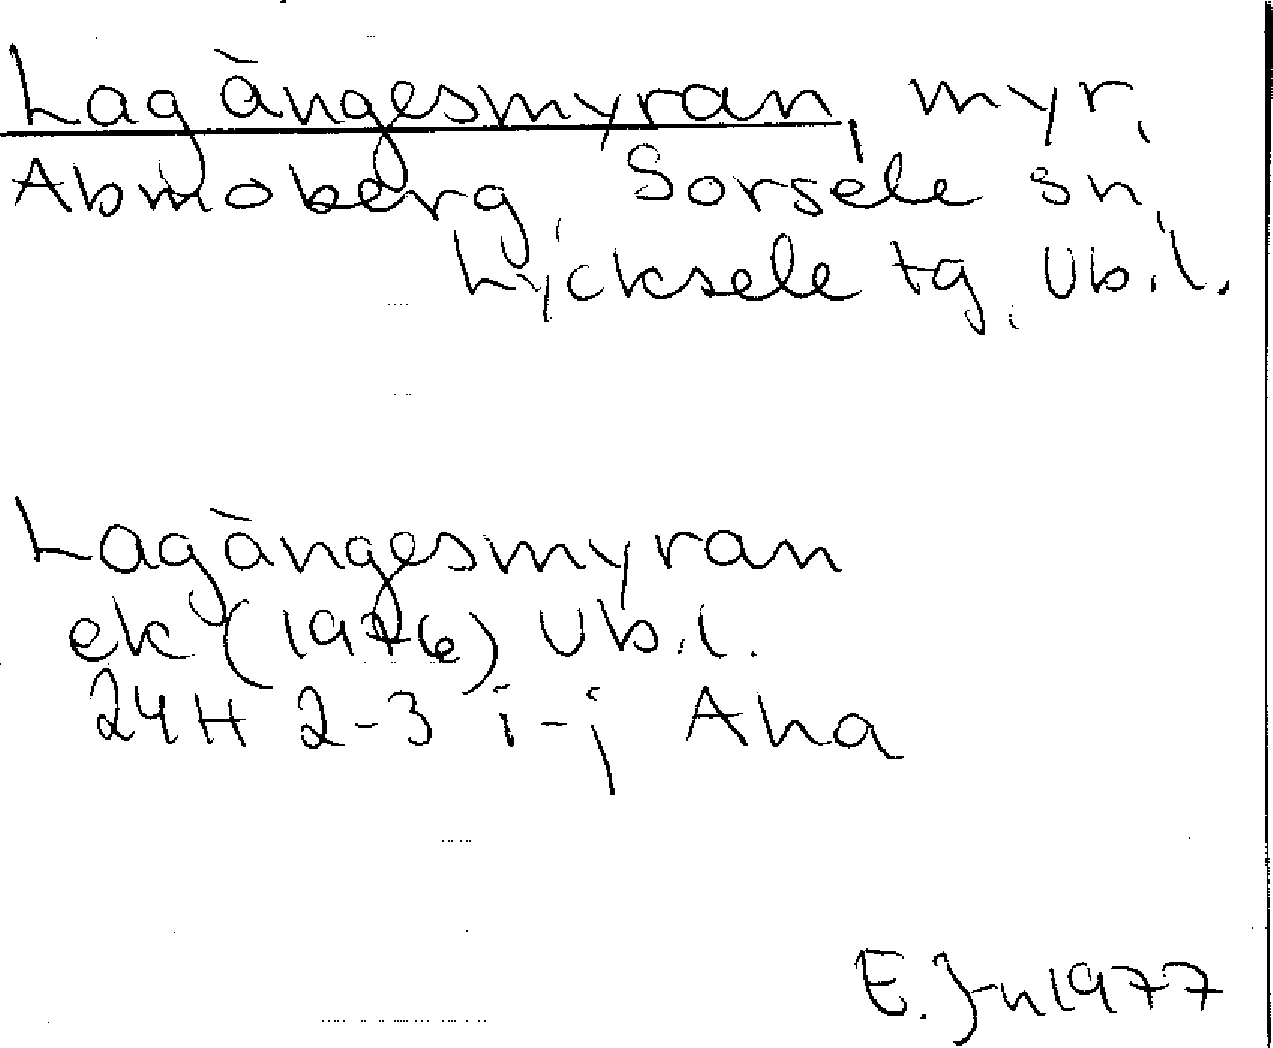 Lagängesmyran, myr,
Abmoberg, Sorsele sn,
Lycksele tg, Vb.l.
Lagängesmyran
ek (1976) Vb.l.
24H 2-3 i-j Aha
E. J-n 1977